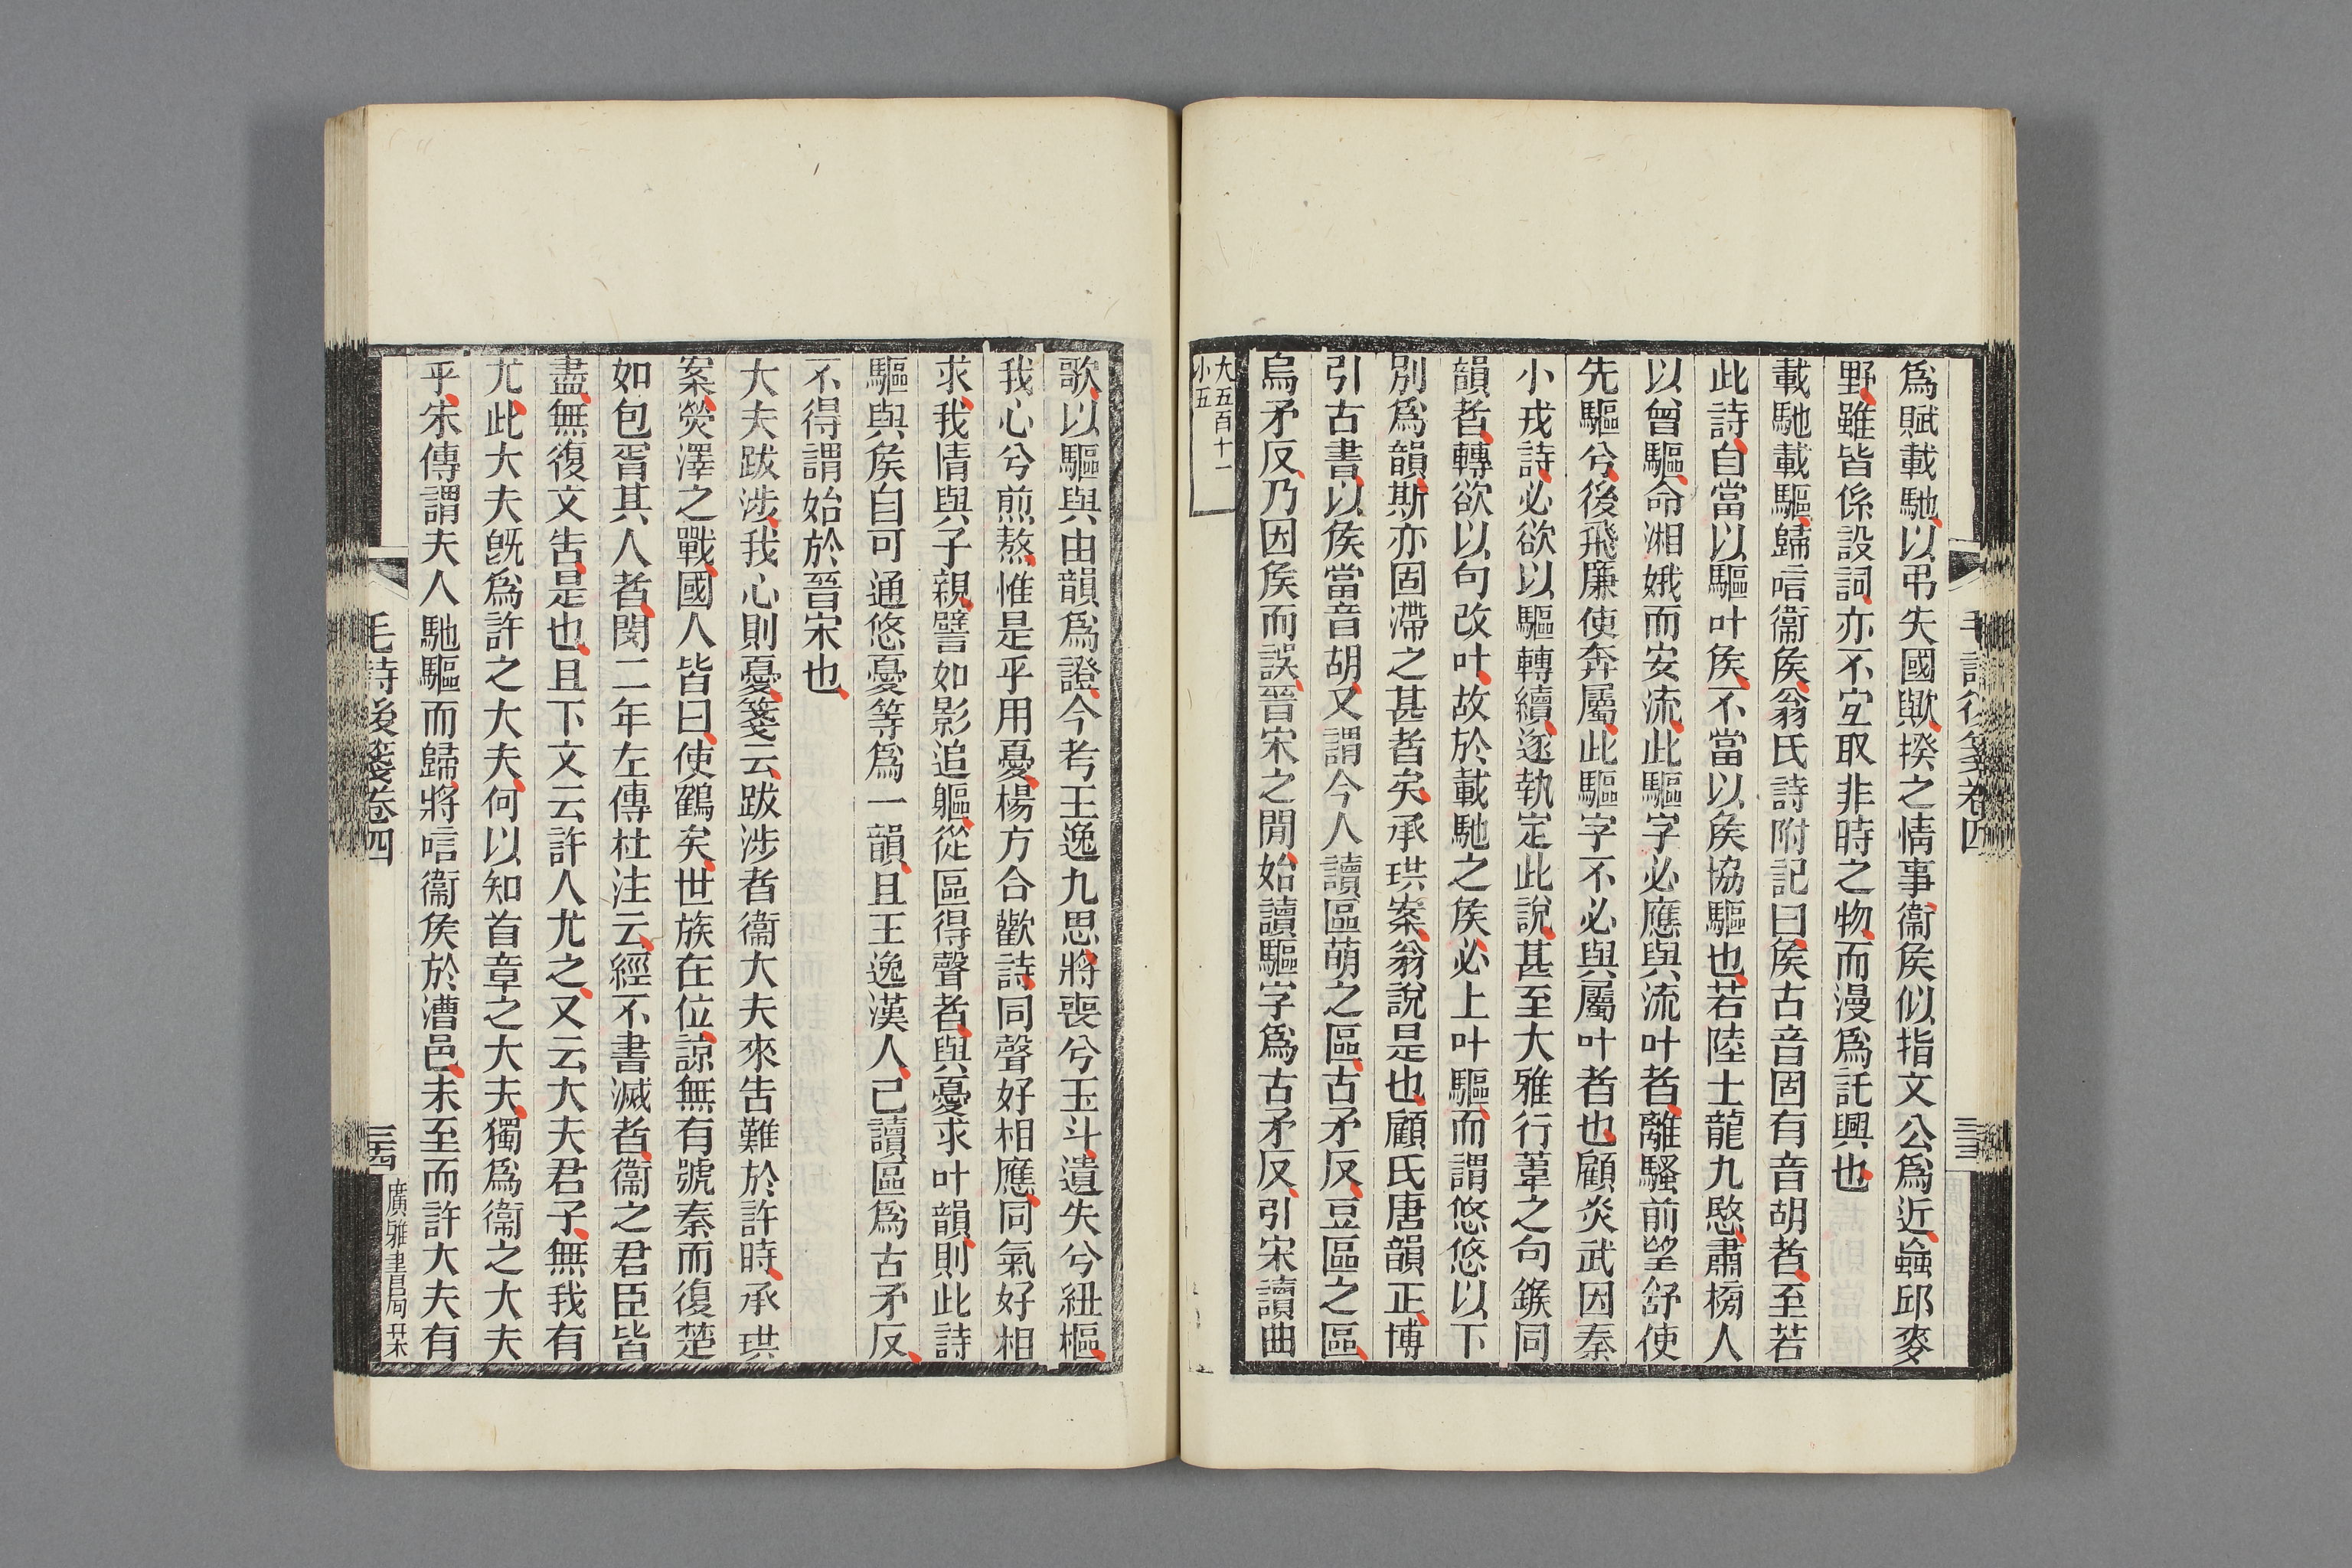 毛詩後箋卷四
三三
爲賦載馳以弔失國歟揆之情事衞矦似指文公爲近蝱邱麥
野雖皆係設詞亦不宐取非時之物而漫爲託興也
載馳載驅歸唁衞矦翁氏詩附記曰矦古音固有音胡者至若
此詩自當以驅叶矦不當以矦協驅也若陸士龍九愍肅榜人
以曾驅命湘娥而安流此驅字必應與流叶者離騷前望舒使
先驅兮後飛廉使奔屬此驅字不必與屬叶者也顧炎武因秦
小戎詩必欲以驅轉續遂執定此說甚至大雅行葦之句鍭同
韻者轉欲以句改叶故於載馳之矦必上叶驅而謂悠悠以下
別爲韻斯亦固滯之甚者矣承珙案翁說是也顧氏唐韻正博
引古書以矦當音胡又謂今人讀區萌之區古矛反豆區之區
烏矛反乃因矦而誤晉宋之閒始讀驅字爲古矛反引宋讀曲
大五百十一
小五
歌以驅與由韻爲證今考王逸九思將喪兮玉斗遺失兮紐樞
我心兮煎熬惟是乎用憂楊方合歡詩同聲好相應同氣好相
求我情與子親譬如影追軀從區得聲者與憂求叶韻則此詩
驅與矦自可通悠憂等爲一韻且王逸漢人已讀區爲古矛反
不得謂始於晉宋也
大夫跋涉我心則憂箋云跋涉者衞大夫來告難於許時承珙
案熒澤之戰國人皆曰使鶴矣世族在位諒無有號秦而復楚
如包胥其人者閔二年左傳杜注云經不書滅者衞之君臣皆
盡無復文告是也且下文云許人尤之又云大夫君子無我有
尤此大夫旣爲許之大夫何以知首章之大夫獨爲衞之大夫
乎朱傳謂夫人馳驅而歸將唁衞矦於漕邑未至而許大夫有
毛詩後箋卷四
三四
廣雅書局栞